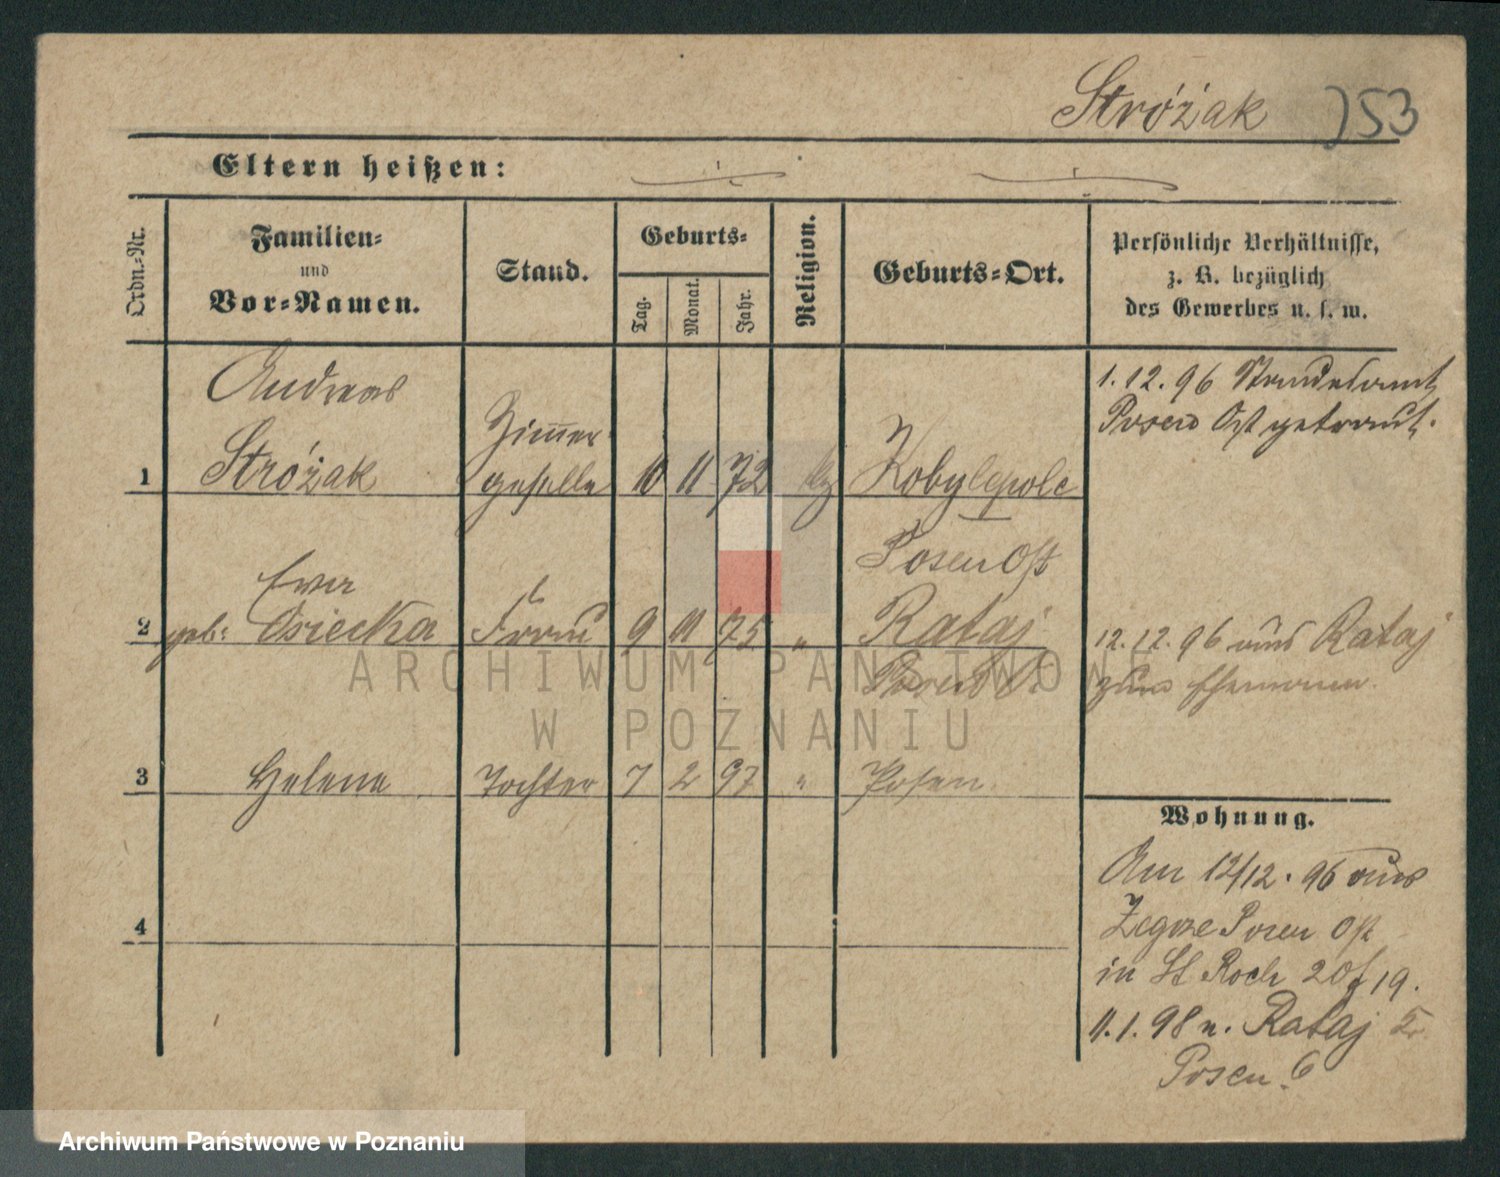 Stróżak 753
Eltern heißen:
Ordn.-Nr.
Familien-
und
Vor-Namen.
Stand.
Geburts-
Tag.
Monat.
Jahr.
Religion.
Geburts-Ort.
Persönliche Verhältnisse,
z. B. bezüglich
des Gewerbes u. s. w.
1
Andreas
Stróżak
Zimmer
geselle
10 11 72
Kobylepole
Posen Ost
1.12.96 Standesamt
Posen Ost getraut.
2
Eva
geb: Osiecka
Frau
9 11 75 "
Rataj
Posen O.
12.12.96 aus Rataj
zum Ehemann.
3
Helene
Tochter
7 2 97 "
Posen.
4
Wohnung.
Am 12/12. 96 aus
Zegrze Posen Ost
in St Roch 19.
11.1.98 n. Rataj 5
Posen 6
ARCHIWUM PAŃSTWOWE
W POZNANIU
Archiwum Państwowe w Poznaniu